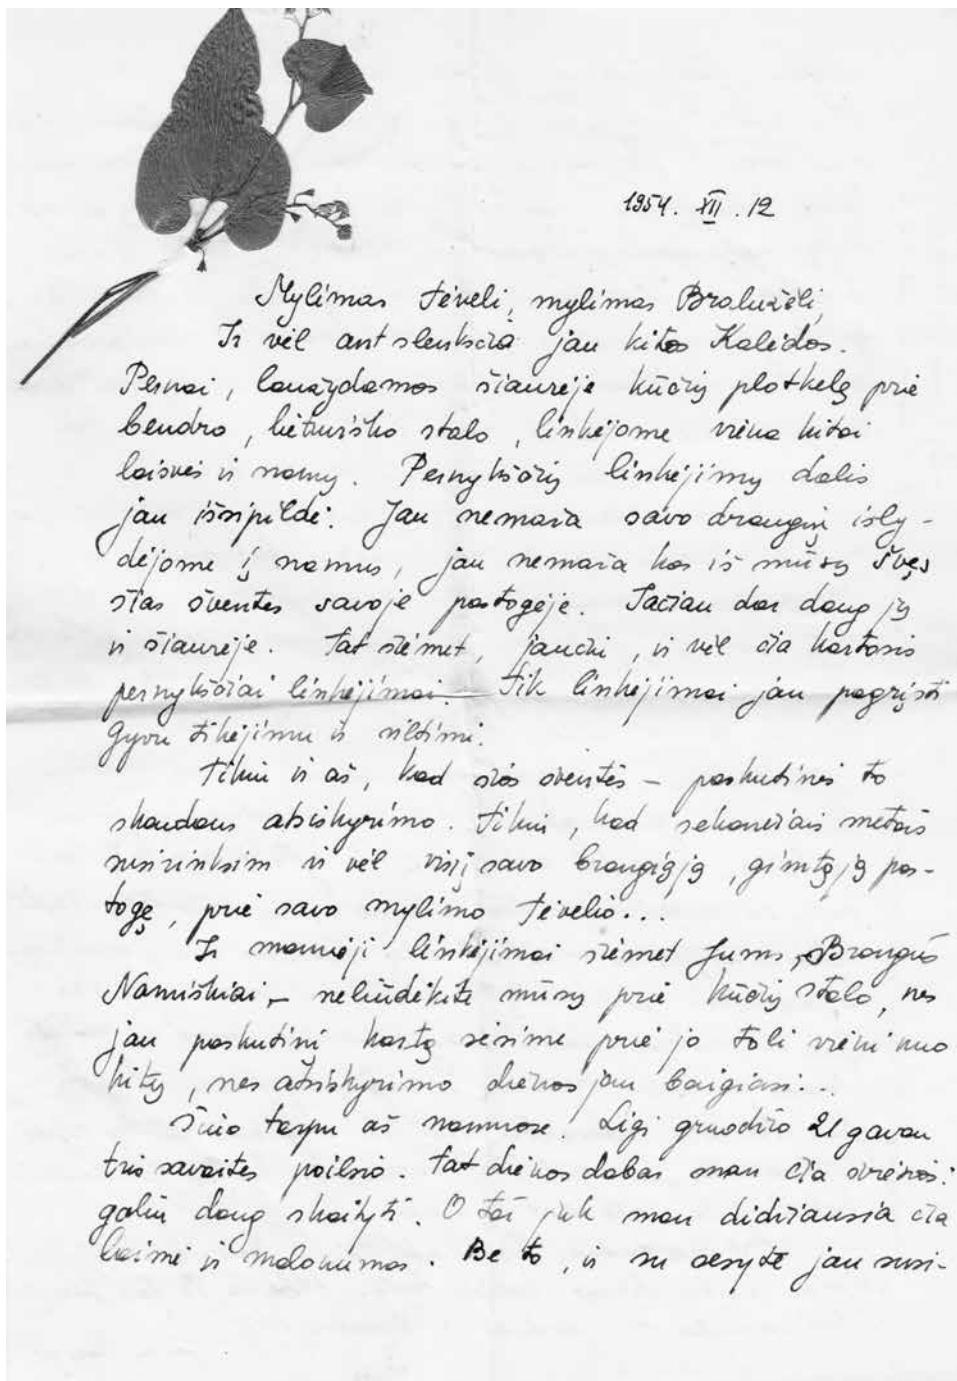 1954. XII. 12
Mylimas Tėveli, mylimas Broliukėli,
Ir vėl ant slenksčio jau kitos Kalėdos.
Pernai, laužydamos šiaurėje kūčių plotkelę prie
bendro, lietuviško stalo, linkėjome viena kitai
laisvės ir namų. Pernykščių linkėjimų dalis
jau išsipildė. Jau nemaža savo draugių išly-
dėjome į namus, jau nemaža kas iš mūsų švęs
šias šventes savoje pastogėje. Tačiau dar daug jų
ir šiaurėje. Tat šiemet, jaučiu, ir vėl čia kartosis
pernykščiai linkėjimai. Tik linkėjimai jau pagrįsti
gyvu tikėjimu ir viltimi.
Tikiu ir aš, kad šios šventės – paskutinės to
skaudaus atsiskyrimo. Tikiu, kad sekančiais metais
susirinksim ir vėl visi į savo brangiąją, gimtąją pas-
togę, prie savo mylimo Tėvelio...
Ir manieji linkėjimai šiemet Jums, Brangūs
Namiškiai, – neliūdėkite mūsų prie kūčių stalo, nes
jau paskutinį kartą sėsime prie jo toli vieni nuo
kitų, nes atsiskyrimo dienos jau baigiasi...
Šiuo tarpu aš namuose. Ligi gruodžio 21 gavau
tris savaites poilsio. Tat dienos dabar man čia šviesios:
galiu daug skaityti. O tai juk man didžiausia čia
laimė ir malonumas. Be to, ir su sesyte jau susi-